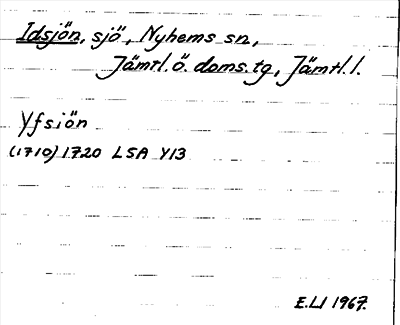 Idsjön, sjö, Nyhems sn,
Jämtl. ö. doms. tg, Jämtl. l.
Yfsiön
(1710) 1720 LSA Y13
E.LJ 1967.